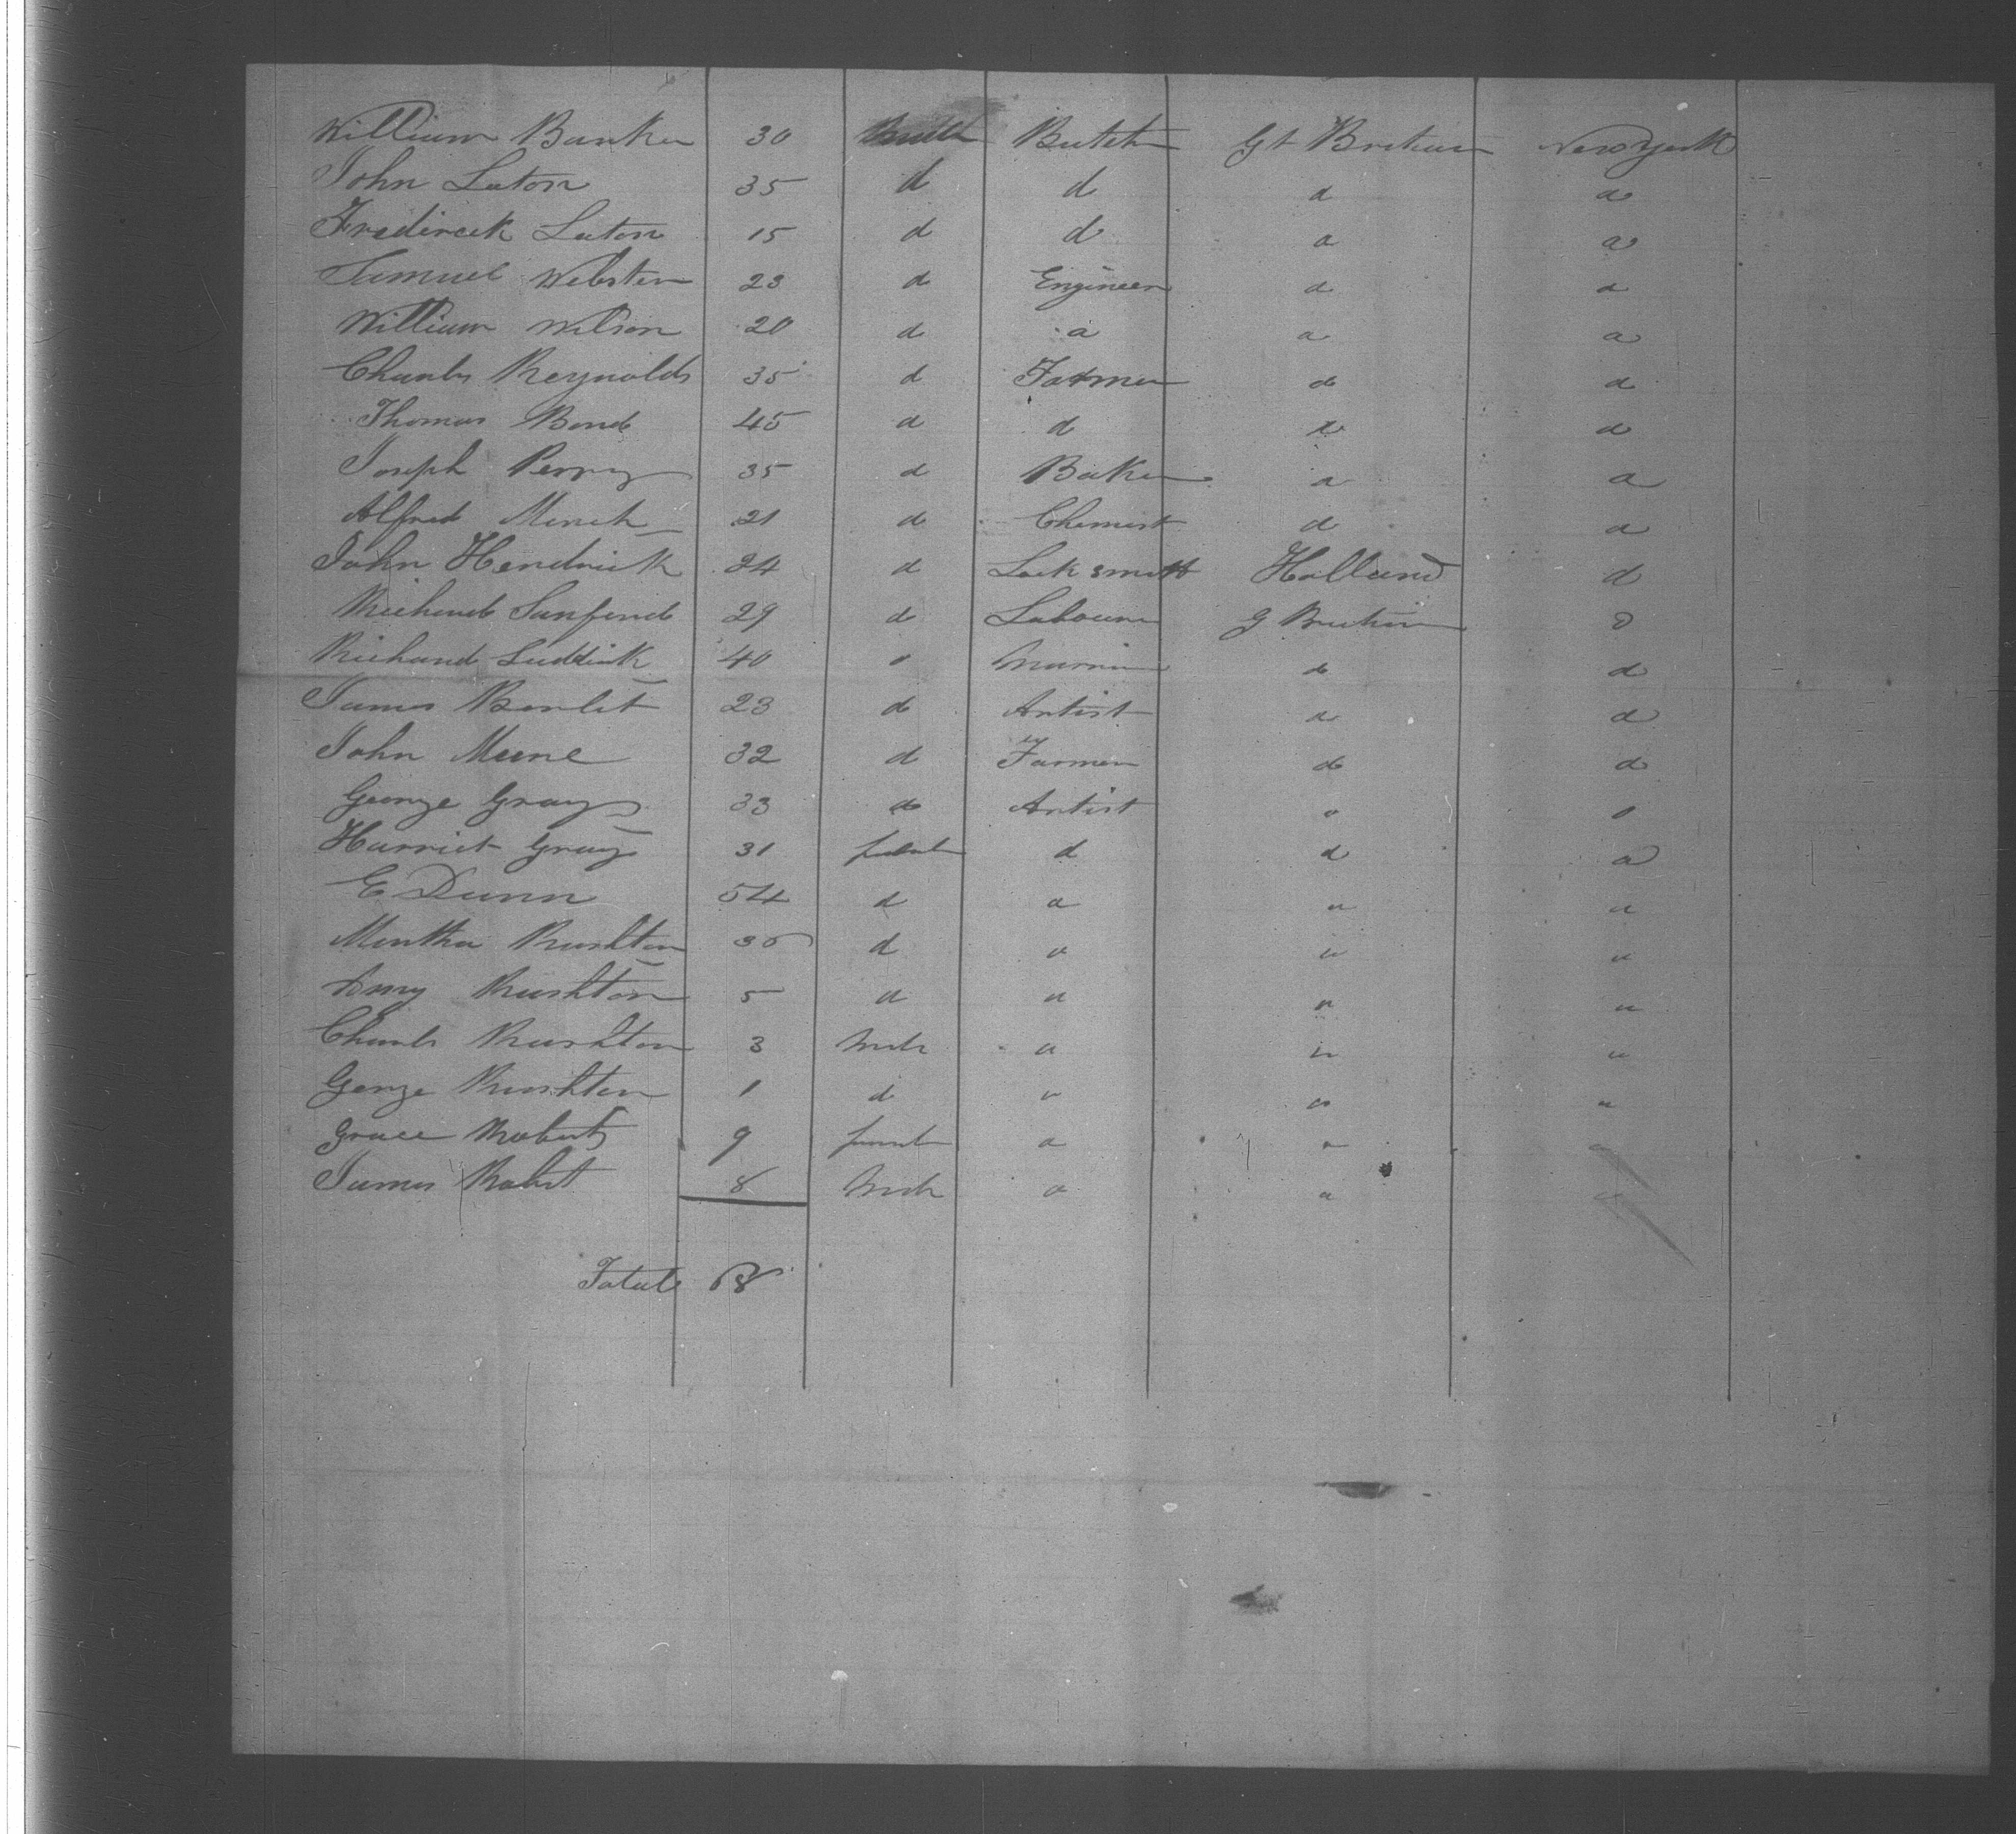 William Banker 30 Male Butcher Gt Britain New York
John Laton 35 d d d d
Fredirick Laton 15 d d d d
Samuel Webster 23 d Engineer d d
William Wilson 20 d d d d
Charles Reynolds 35 d Farmer d d
Thomas Bond 45 d d d d
Joseph Perry 35 d Baker d d
Alfred 21 d Chemist d d
John Hendrick 24 d Lock smith Holland d
Richard Sanford 29 d Labourer G Britain d
Richard 40 d d d
James 23 d Artist d d
John 32 d Farmer d d
George Gray 33 d Artist d d
Harriet Gray 31 female d d d
E Dunn 54 d d d d
Martha Rushton 30 d d d d
Amy Rushton 5 d d d d
Charles Rushton 3 Male d d d
George Rushton 1 d d d d
Grace Roberts 9 female d d d
James Robert 8 Male d d d
Total 68